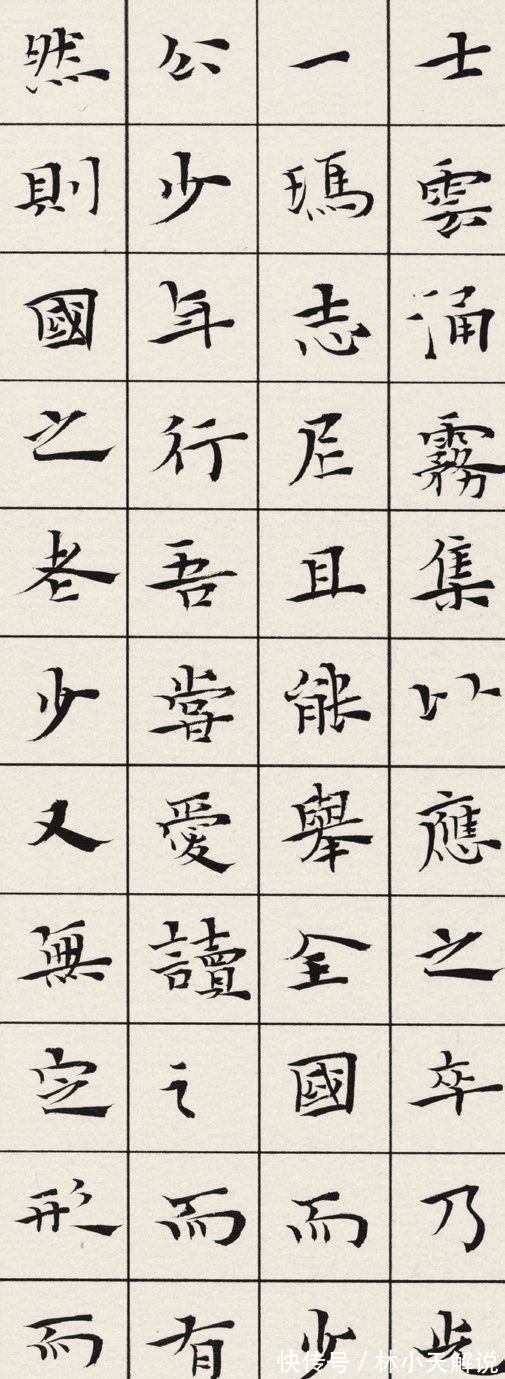 士雲涌霧集以應之卒乃
一瑪志尼且能舉全國而少
公少年行吾嘗愛讀之而有
然則國之老少又無定形而
快传号/林小天解说